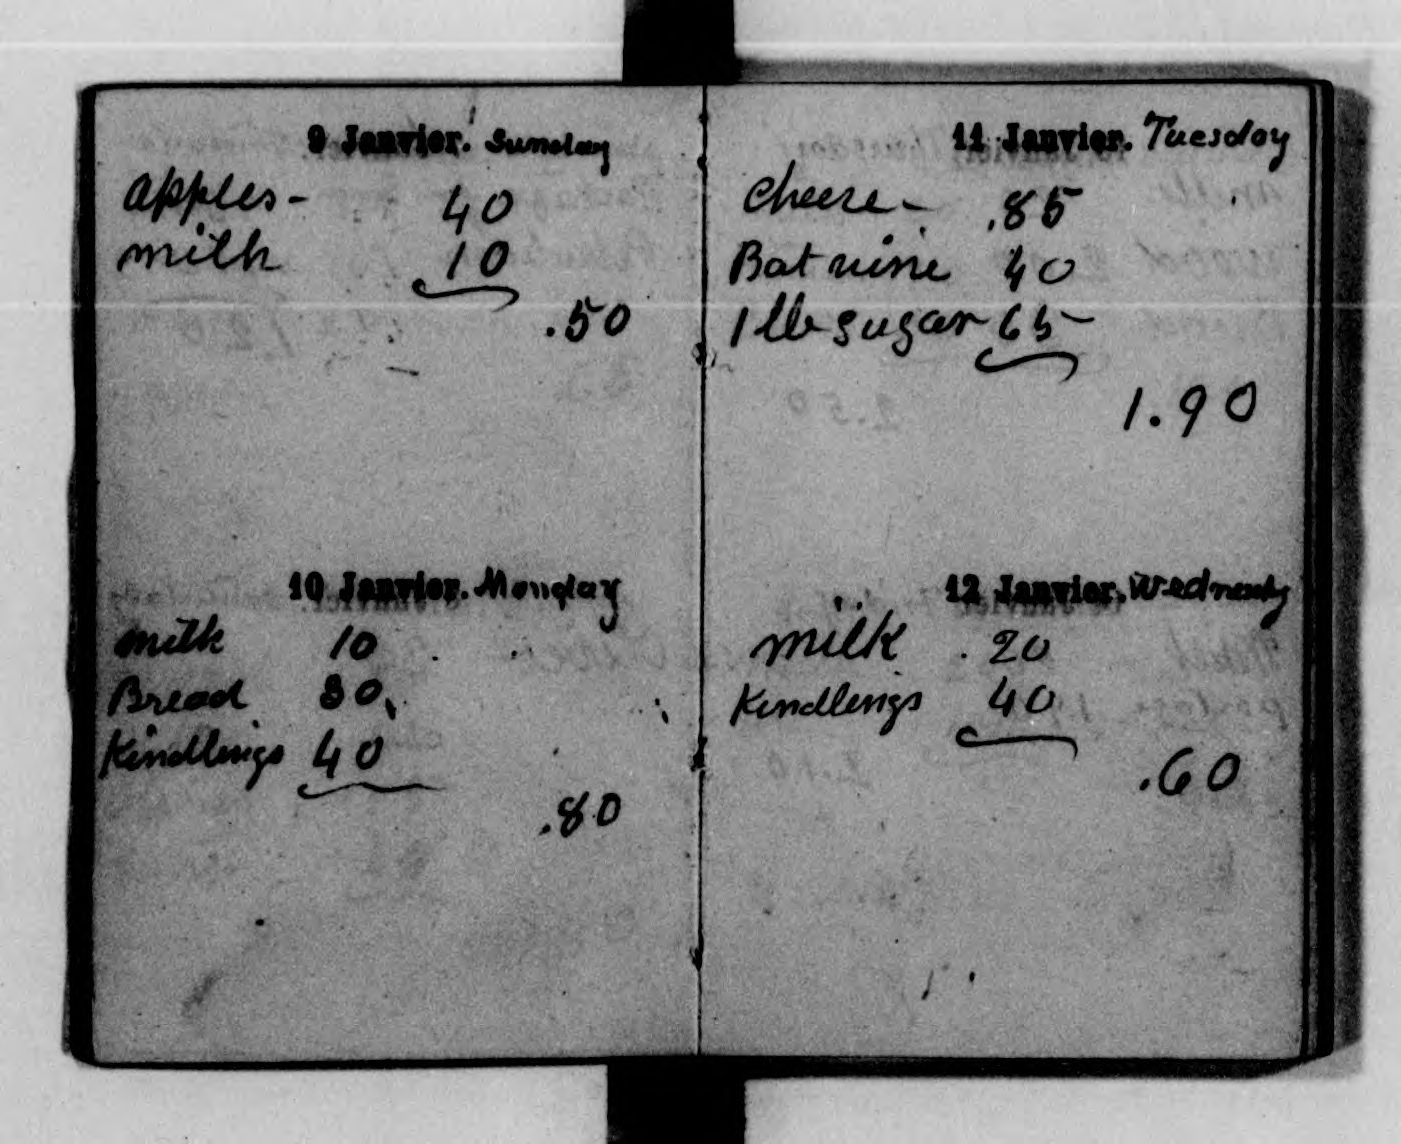 9 Janvier. Sunday
apples - 40
milk 10
.50
10 Janvier. Monday
milk 10
Bread 30
Kindlings 40
.80
11 Janvier. Tuesday
cheese - .85
Bot wine 40
1 lb sugar 65
1.90
12 Janvier. Wednesdy
milk 20
Kindlings 40
.60